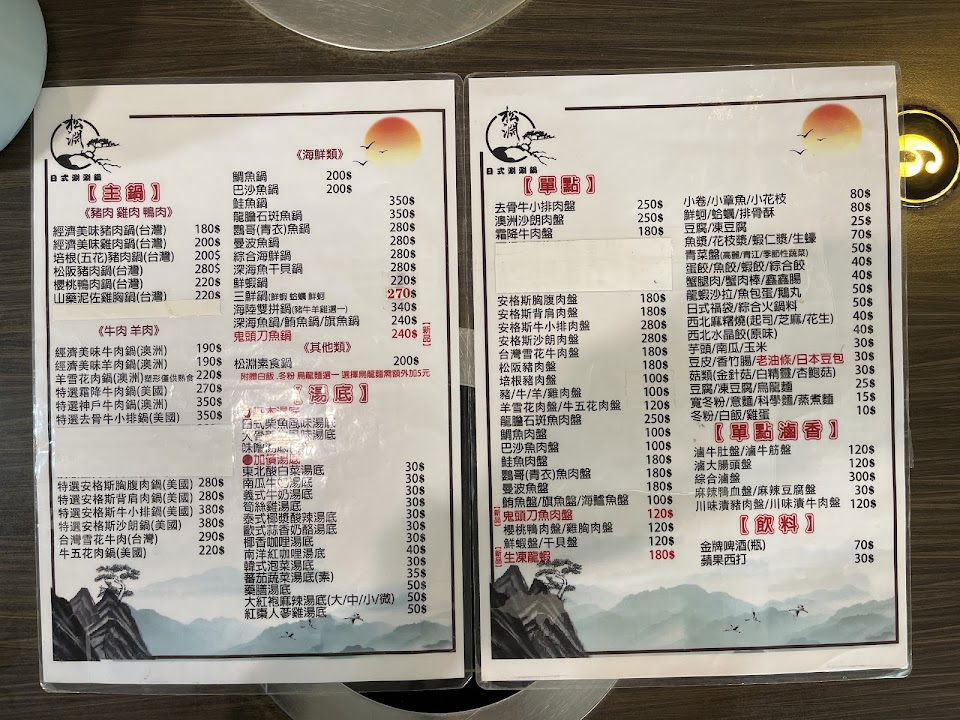 松淵
日式涮涮鍋
【主鍋】
《豬肉 雞肉 鴨肉》
經濟美味豬肉鍋(台灣) 180$
經濟美味雞肉鍋(台灣) 200$
培根(五花)豬肉鍋(台灣) 200$
松阪豬肉鍋(台灣) 280$
櫻桃鴨肉鍋(台灣) 220$
山藥泥佐雞胸鍋(台灣) 220$
《牛肉 羊肉》
經濟美味牛肉鍋(澳洲) 190$
經濟美味羊肉鍋(澳洲) 190$
羊雪花肉鍋(澳洲)塑形僅供熟食 220$
特選霜降牛肉鍋(美國) 270$
特選神戶牛肉鍋(澳洲) 350$
特選去骨牛小排鍋(美國) 350$
特選安格斯胸腹肉鍋(美國) 280$
特選安格斯背肩肉鍋(美國) 280$
特選安格斯牛小排鍋(美國) 380$
特選安格斯沙朗鍋(美國) 380$
台灣雪花牛肉鍋(台灣) 290$
牛五花肉鍋(美國) 220$
《海鮮類》
鯛魚鍋 200$
巴沙魚鍋 200$
鮭魚鍋 350$
龍膽石斑魚鍋 350$
鸚哥(青衣)魚鍋 280$
曼波魚鍋 280$
綜合海鮮鍋 280$
深海魚干貝鍋 280$
鮮蝦鍋 220$
三鮮鍋(鮮蝦 蛤蠣 鮮蚵) 270$
海陸雙拼鍋(豬牛羊雞選一) 340$
深海魚鍋/鮪魚鍋/旗魚鍋 240$
鬼頭刀魚鍋 240$ 【新品】
《其他類》
松淵素食鍋 200$
附贈白飯.冬粉.烏龍麵選一 選擇烏龍麵需額外加5元
【湯底】
日式柴魚風味湯底
大骨
味噌湯底
●加價湯底
東北酸白菜湯底 30$
南瓜牛奶湯底 30$
義式牛奶湯底 30$
筍絲雞湯底 30$
泰式椰漿酸辣湯底 30$
歐式蒜香奶酪湯底 30$
椰香咖哩湯底 30$
南洋紅咖哩湯底 40$
韓式泡菜湯底 30$
蕃茄蔬菜湯底(素) 35$
藥膳湯底 50$
大紅袍麻辣湯底(大/中/小/微) 50$
紅棗人蔘雞湯底 50$
松淵
日式涮涮鍋
【單點】
去骨牛小排肉盤 250$
澳洲沙朗肉盤 250$
霜降牛肉盤 180$
安格斯胸腹肉盤 180$
安格斯背肩肉盤 180$
安格斯牛小排肉盤 280$
安格斯沙朗肉盤 280$
台灣雪花牛肉盤 180$
松阪豬肉盤 180$
培根豬肉盤 100$
豬/牛/羊/雞肉盤 100$
羊雪花肉盤/牛五花肉盤 120$
龍膽石斑魚肉盤 250$
鯛魚肉盤 100$
巴沙魚肉盤 100$
鮭魚肉盤 180$
鸚哥(青衣)魚肉盤 180$
曼波魚盤 180$
鮪魚盤/旗魚盤/海鱺魚盤 100$
【新品】鬼頭刀魚肉盤 120$
櫻桃鴨肉盤/雞胸肉盤 120$
鮮蝦盤/干貝盤 120$
【新品】生凍龍蝦 180$
小卷/小章魚/小花枝 80$
鮮蚵/蛤蠣/排骨酥 80$
豆腐/凍豆腐 25$
魚漿/花枝漿/蝦仁漿/生蠔 70$
青菜盤(高麗/青江/季節性蔬菜) 50$
蛋餃/魚餃/蝦餃/綜合餃 40$
蟹腿肉/蟹肉棒/鑫鑫腸 40$
龍蝦沙拉/魚包蛋/鵝丸 50$
日式福袋/綜合火鍋料 50$
西北麻糬燒(起司/芝麻/花生) 40$
西北水晶餃(原味) 40$
芋頭/南瓜/玉米 30$
豆皮/香竹腸/老油條/日本豆包 30$
菇類(金針菇/白精靈/杏鮑菇) 30$
豆腐/凍豆腐/烏龍麵 25$
寬冬粉/意麵/科學麵/蒸煮麵 15$
冬粉/白飯/雞蛋 10$
【單點滷香】
滷牛肚盤/滷牛筋盤 120$
滷大腸頭盤 120$
綜合滷盤 300$
麻辣鴨血盤/麻辣豆腐盤 30$
川味漬豬肉盤/川味漬牛肉盤 120$
【飲料】
金牌啤酒(瓶) 70$
蘋果西打 30$